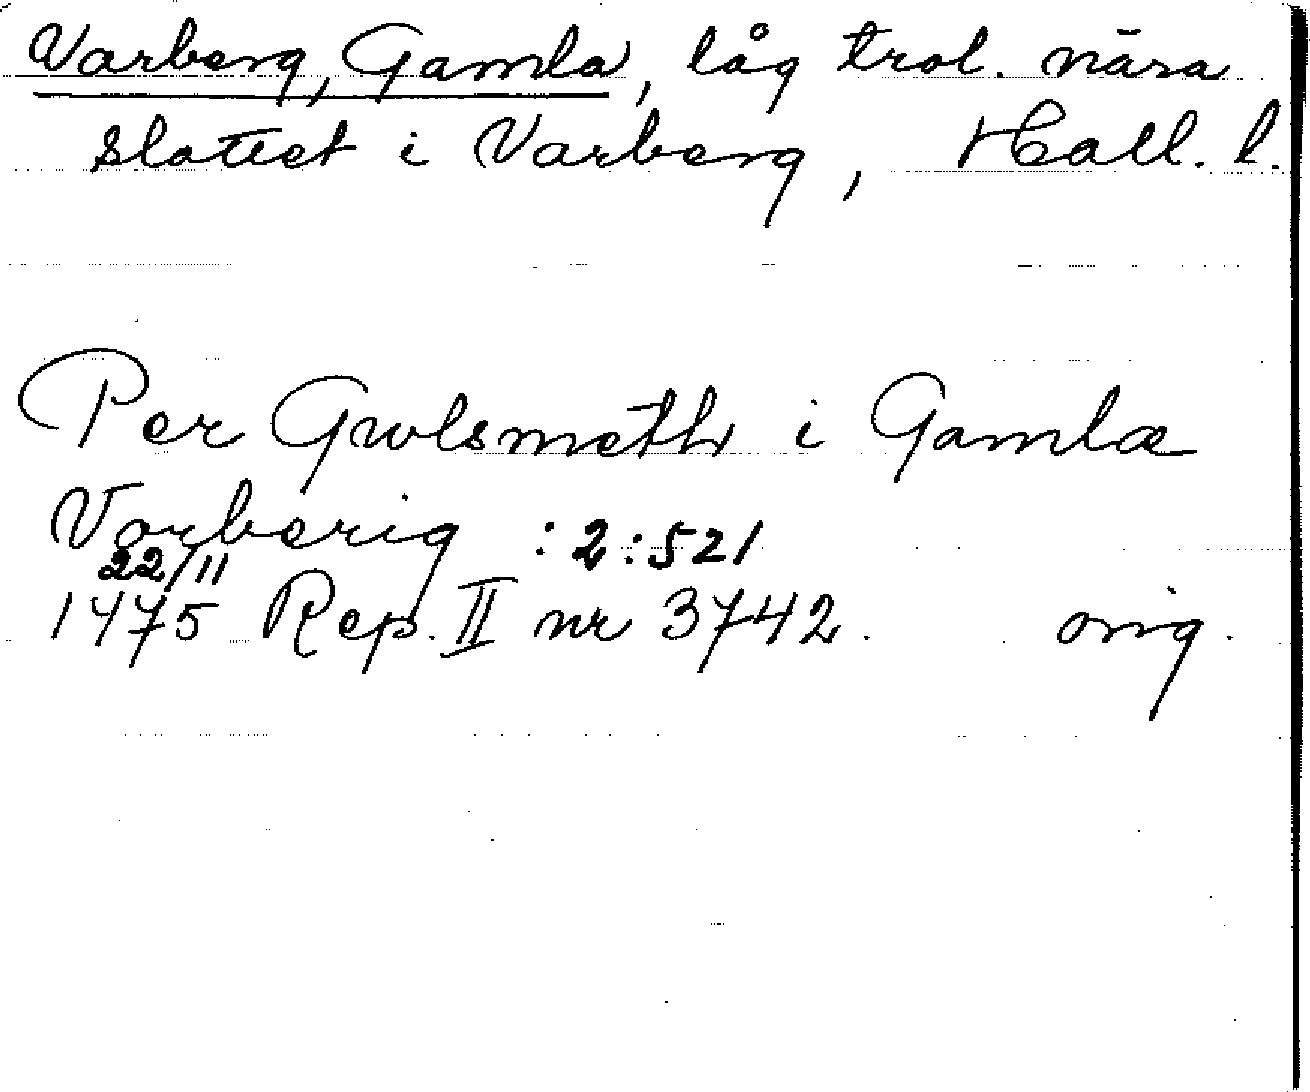 Varberg, Gamla, låg trol. nära
slottet i Varberg, Hall. l.
Per Gwlsmeth i Gamlæ
Varberig : 2:521
22/11
1475 Rep. II nr 3742. orig.